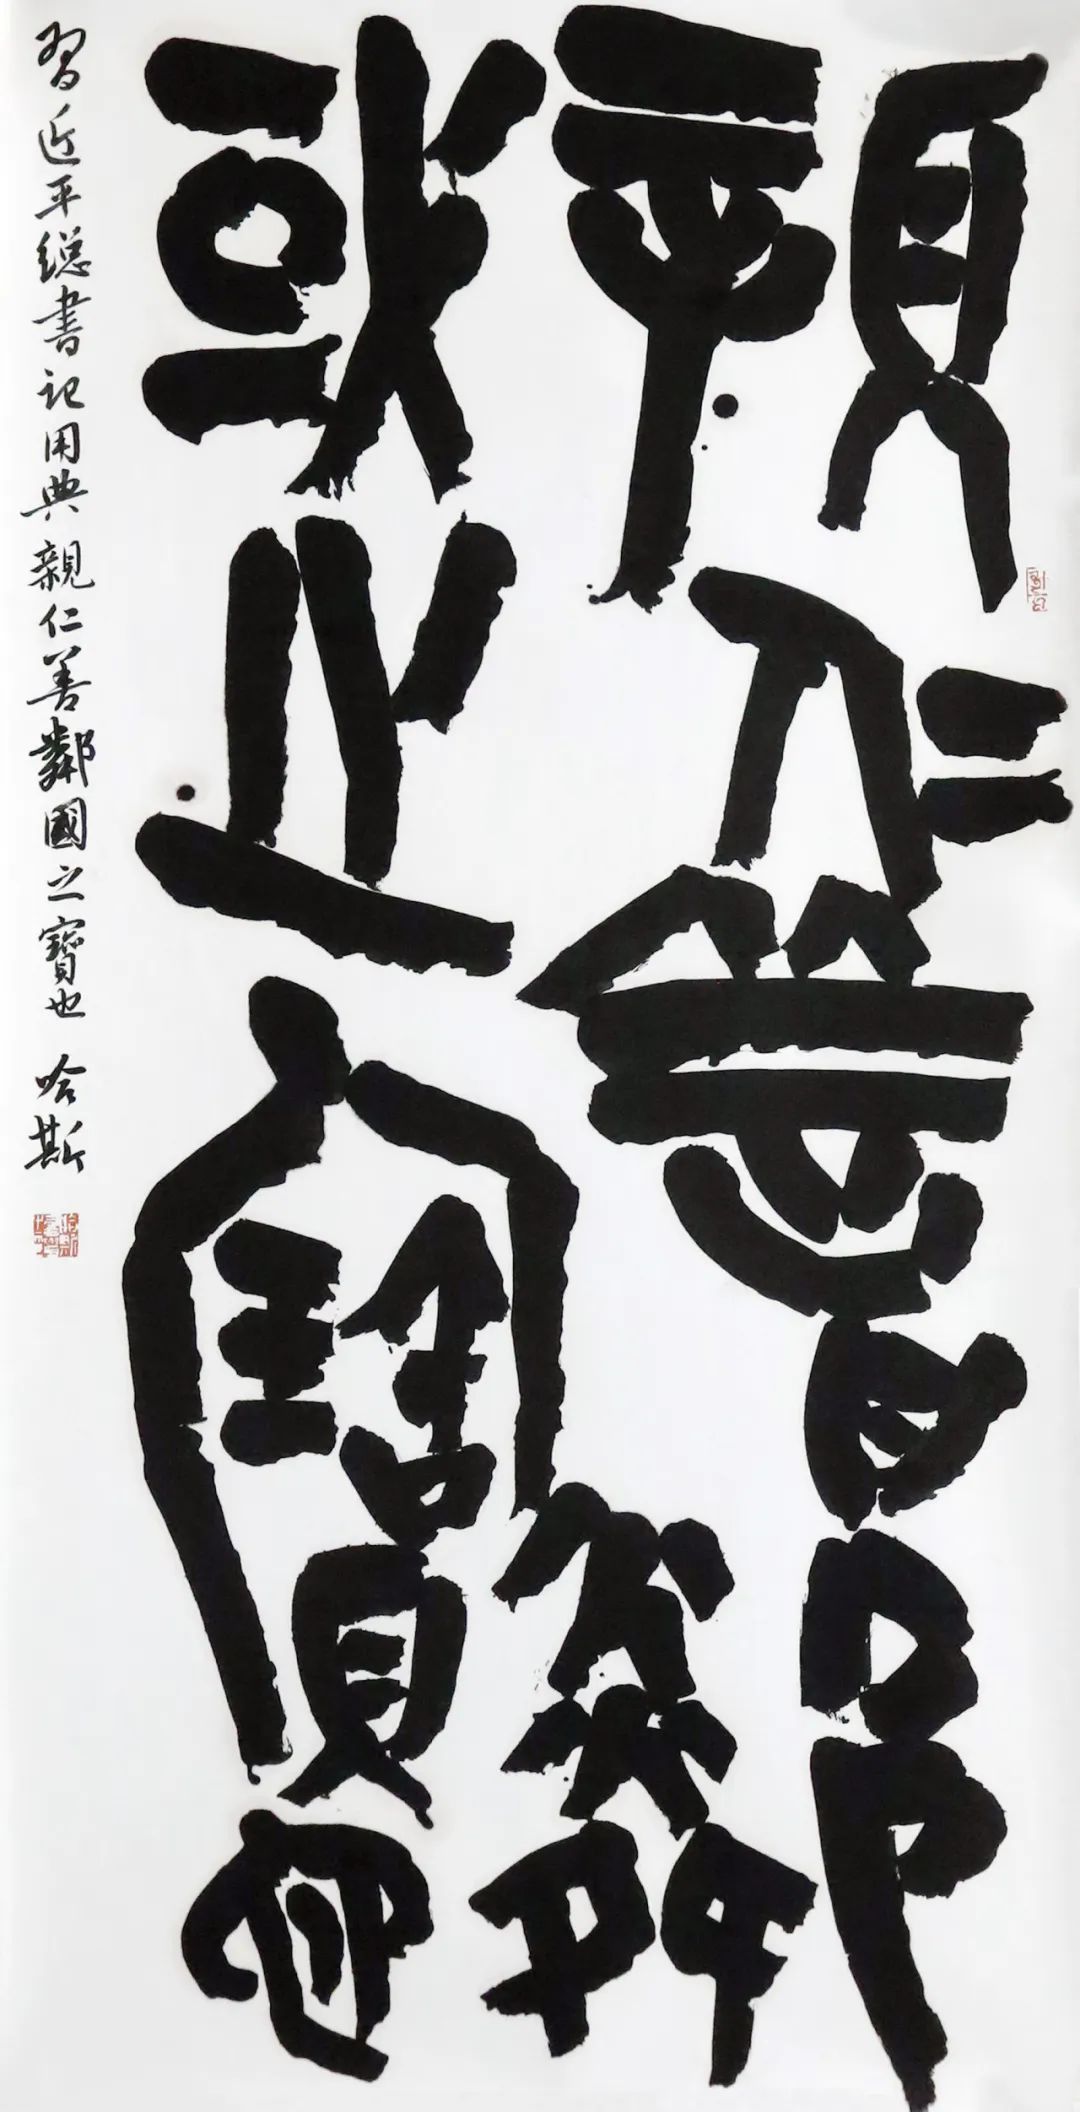 親仁善鄰
國之寶也
習近平總書記用典親仁善鄰國之寶也 哈斯